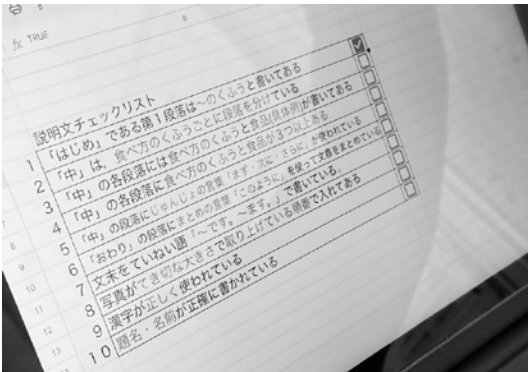 fx TRUE
説明文チェックリスト
1 「はじめ」である第1段落は~のくふうと書いてある
2 「中」は、食べ方のくふうごとに段落を分けている
3 「中」の各段落には食べ方のくふうと食品(具体例)が書いてある
4 「中」の各段落に食べ方のくふうと食品が3つ以上ある
5 「中」の段落にじゅんじょの言葉「まず・次に・さらに」が使われている
6 「おわり」の段落にまとめの言葉「このように」を使って文章をまとめている
7 文末をていねい語「~です。~ます。」で書いている。
8 写真がてき切な大きさで取り上げている順番で入れてある
9 漢字が正しく使われている
10 題名・名前が正確に書かれている